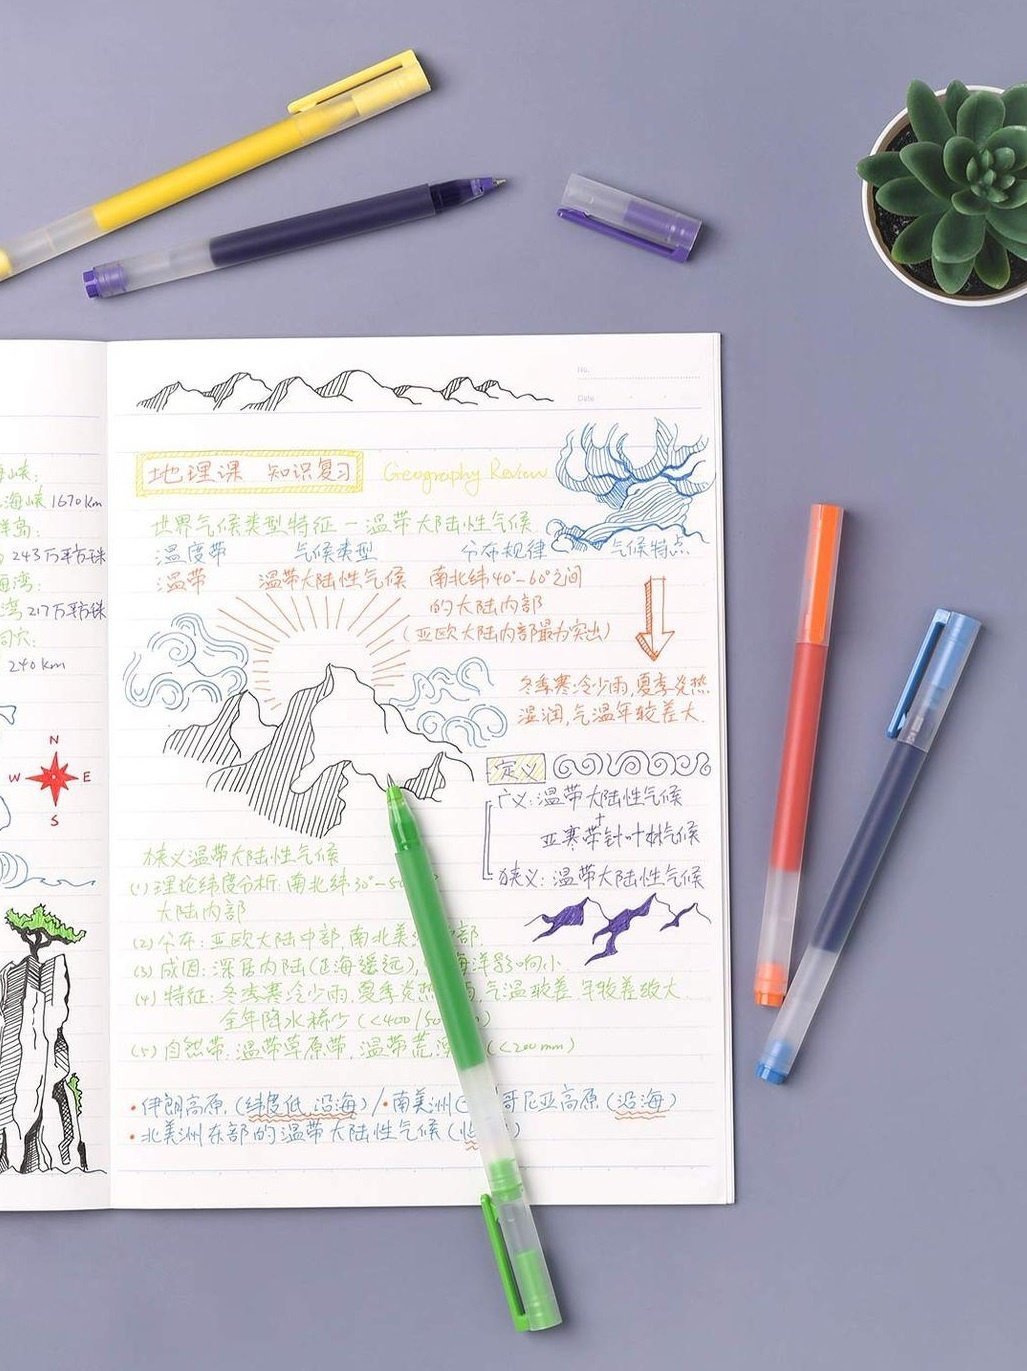 海峡:
海峡 1670km
群岛:
243万平方km
海湾:
湾 217万平方km
240km
N
W E
S
No.
Date
地理课 知识复习 Geography Review
世界气候类型特征-温带大陆性气候
温度带 气候类型 分布规律 气候特点
温带 温带大陆性气候 南北纬40°-60°之间
的大陆内部
(亚欧大陆内部最为突出)
冬季寒冷少雨,夏季炎热
湿润,气温年较差大.
定义
广义:温带大陆性气候
+
亚寒带针叶林气候
狭义:温带大陆性气候
狭义温带大陆性气候
(1)理论纬度分析:南北纬30°-5
大陆内部
(2)分布:亚欧大陆中部,南北美 部.
(3)成因:深居内陆(距海遥远), 海洋影响小
(4)特征:冬季寒冷少雨,夏季炎热 雨,气温较差 年较差较大.
全年降水稀少(<400/50 )
(5)自然带:温带草原带,温带荒漠 (<200mm)
·伊朗高原,(纬度低,沿海)/·南美洲 哥尼亚高原(沿海)
·北美洲东部的温带大陆性气候( )